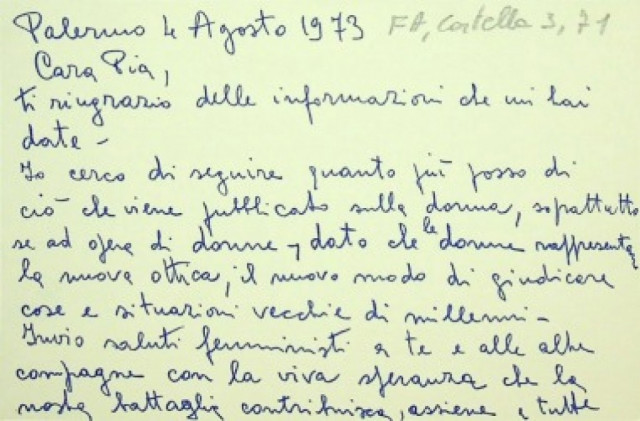 Palermo 4 Agosto 1973 FA, Cartella 3, 71
Cara Pia,
ti ringrazio delle informazioni che mi hai
date -
Io cerco di seguire quanto più posso di
ciò che viene pubblicato sulla donna, soprattutto
se ad opera di donne, dato che le donne rappresenta
la nuova ottica, il nuovo modo di giudicare
cose e situazioni vecchie di millenni -
Invio saluti femministi a te e alle altre
compagne con la viva speranza che la
nostra battaglia contribuisca, assieme a tutte